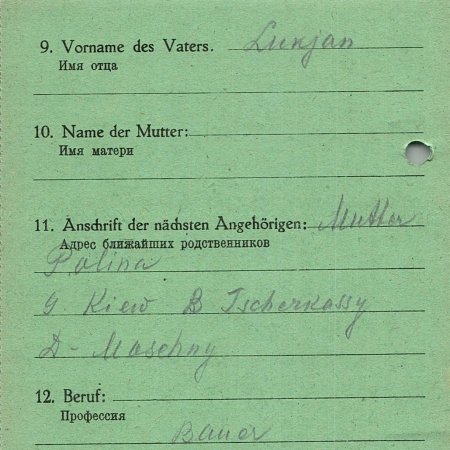 9. Vorname des Vaters. Lukjan
Имя отца
10. Name der Mutter:
Имя матери
11. Anschrift der nächsten Angehörigen: Mutter
Адрес ближайших родственников
Polina
G. Kiew B Tscherkassy
D- Moschny
12. Beruf:
Профессия
Bauer